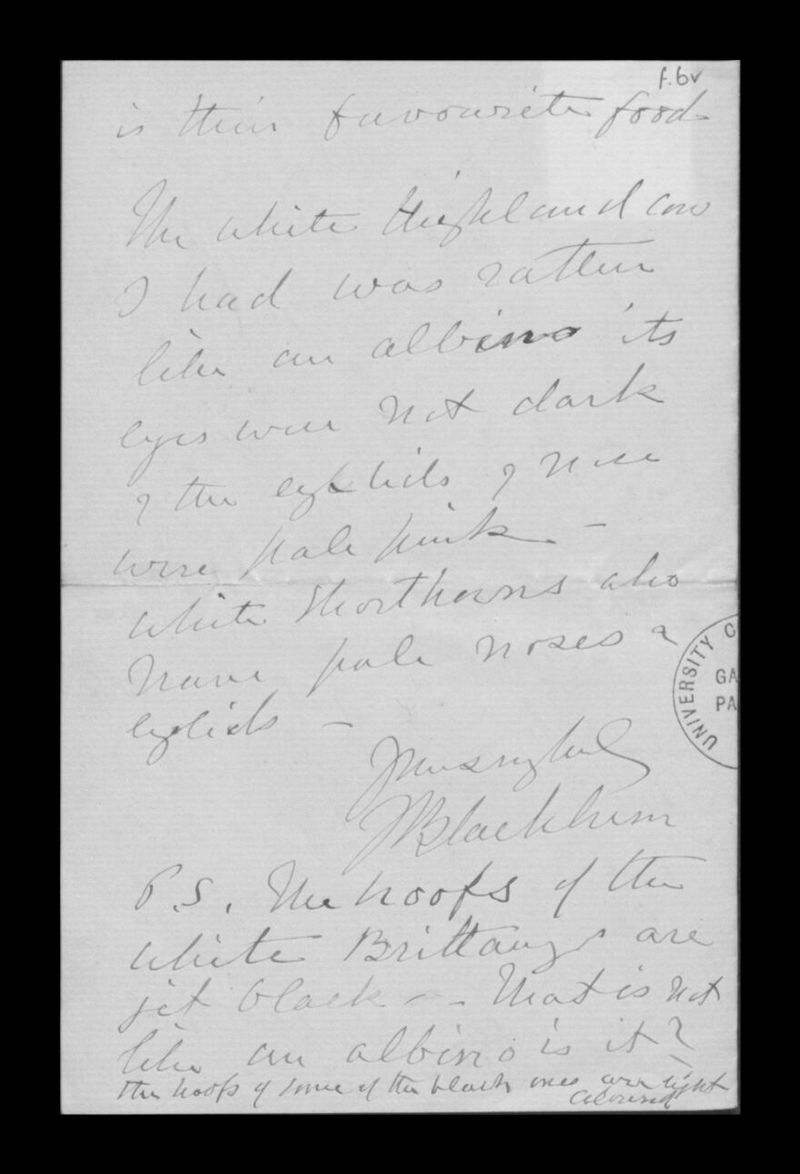 f.6v
is their favourite food
The white Highland cow
I had was rather
like an albino its
eyes were not dark
& the eyelids & nose
were pale pink –
white Shorthorns also
have pale noses &
eyelids –
Yours truly
J Blackburn
P.S. The hoofs of the
white Brittanys are
jet black – – That is not
like an albino is it?
the hoofs of some of the black ones are light
coloured
UNIVERSITY C
GA
PA